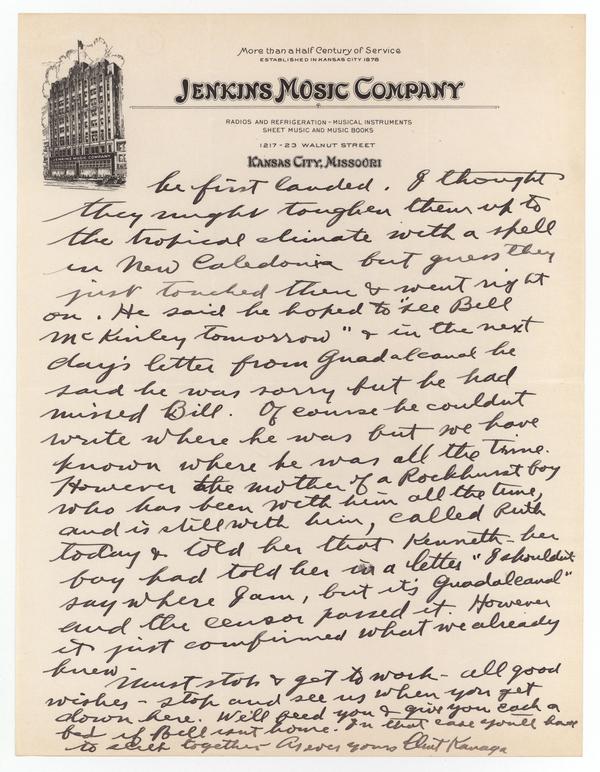 More than a Half Century of Service
ESTABLISHED IN KANSAS CITY 1878
JENKINS MUSIC COMPANY
RADIOS AND REFRIGERATION - MUSICAL INSTRUMENTS
SHEET MUSIC AND MUSIC BOOKS
1217-23 WALNUT STREET
KANSAS CITY, MISSOURI
JENKINS MUSIC COMPANY
he first landed. I thought
they might toughen them up to
the tropical climate with a spell
in New Caledonia but guess they
just touched there & went right
on. He said he hoped to "see Bill
McKinley tomorrow" & in the next
day's letter from Guadalcanal he
said he was sorry but he had
missed Bill. Of course he couldnt
write where he was but we have
known where he was all the time.
However the mother of a Rockhurst boy
who has been with him all the time,
and is still with him, called Ruth
today & told her that Kenneth - her
boy had told her in a letter "I shouldnt
say where I am, but it's Guadalcanal"
and the censor passed it. However
it just confirmed what we already
knew -
Must stop & get to work - all good
wishes - stop and see us when you get
down here. We'll feed you & give you each a
bed if Bill isnt home. In that case you'll have
to sleep together - As ever yours Clint Kanaga